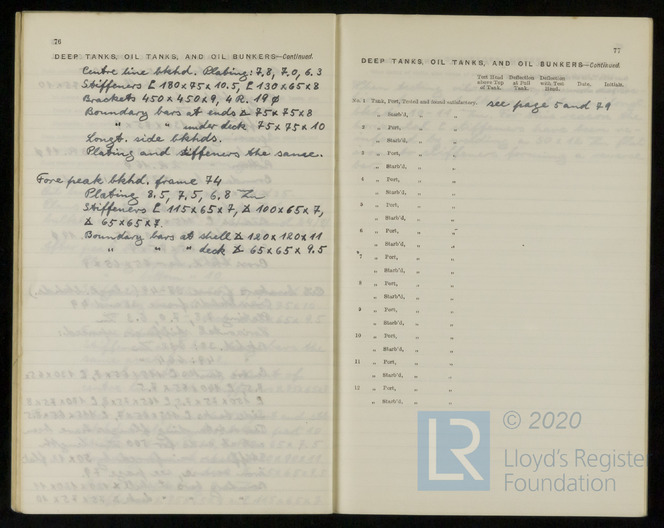 76
DEEP TANKS, OIL TANKS, AND OIL BUNKERS—Continued.
Centre line bkhd. Plating: 7.8, 7.0, 6.3
Stiffeners [ 180 x 75 x 10.5, [ 130 x 65 x 8
Brackets 450 x 450 x 9, 4 R. 19 ϕ
Boundary bars at ends ∆ 75 x 75 x 8
" " under deck 75 x 75 x 10
Longt. side bkhds.
Plating and stiffeners the same.
Fore peak bkhd. frame 74
Plating 8.5, 7.5, 6.8
Stiffeners [ 115 x 65 x 7, ∆ 100 x 65 x 7,
∆ 65 x 65 x 7.
Boundary bars at shell ∆ 120 x 120 x 11
" " " deck ∆ 65 x 65 x 9.5
77
DEEP TANKS, OIL TANKS, AND OIL BUNKERS—Continued.
Test Head above Top of Tank. Deflection at Full Tank. Deflection with Test Head. Date. Initials.
No. 1 Tank, Port, Tested and found satisfactory. see page 5 and 79
" Starb'd, "
2 " Port, " "
" Starb'd, " "
3 " Port, " "
" Starb'd, " "
4 " Port, " "
" Starb'd, " "
5 " Port, " "
" Starb'd, " "
6 " Port, " "
" Starb'd, " "
7 " Port, " "
" Starb'd, " "
8 " Port, " "
" Starb'd, " "
9 " Port, " "
" Starb'd, " "
10 " Port, " "
" Starb'd, " "
11 " Port, " "
" Starb'd, " "
12 " Port, " "
" Starb'd, " "
© 2020
LR
Lloyd's Register
Foundation